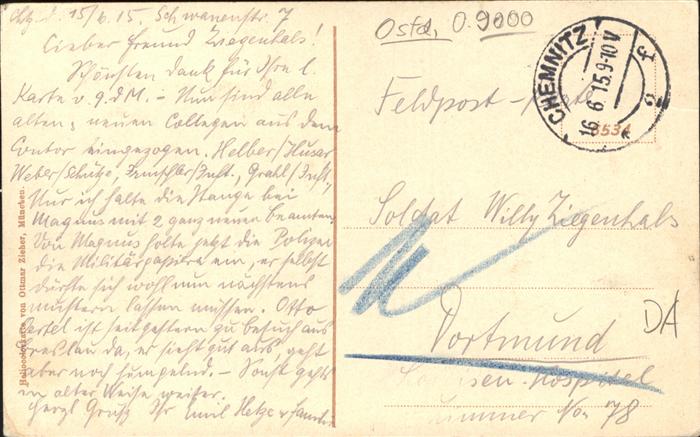 Chtz. d. 15/6.15. Schwanenstr. 7
Lieber Freund Ziegenhals!
Schönsten Dank für Ihre l.
Karte v. 9. d M. – Nun sind alle
alten, neuen Collegen aus dem
Contor eingezogen. Helber/Husar
Weber/Schütze, /Inft., Grahl/Inft.
Nur ich halte die Stange bei
Magnus mit 2 ganz neuen Beamten.
Von Magnus holte jetzt die Polizei
die Militärpapiere ein, er selbst
dürfte sich wohl nun nächstens
mustern lassen müssen. Otto
Oertel ist seit gestern zu Besuch aus
Breslau da, er sieht gut aus, geht
aber noch humpelnd. – Sonst gehts
in alter Weise weiter.
Herzl Gruß Ihr Emil Hetze u Familie
Heliocolorkarte von Ottmar Zieher, München.
Ostd, 0.9000
CHEMNITZ
16.6.15.9-10V
f
2
Feldpost-Karte
8534
Soldat Willy Ziegenhals
Dortmund
DA
-Hospital
Zimmer No. 78